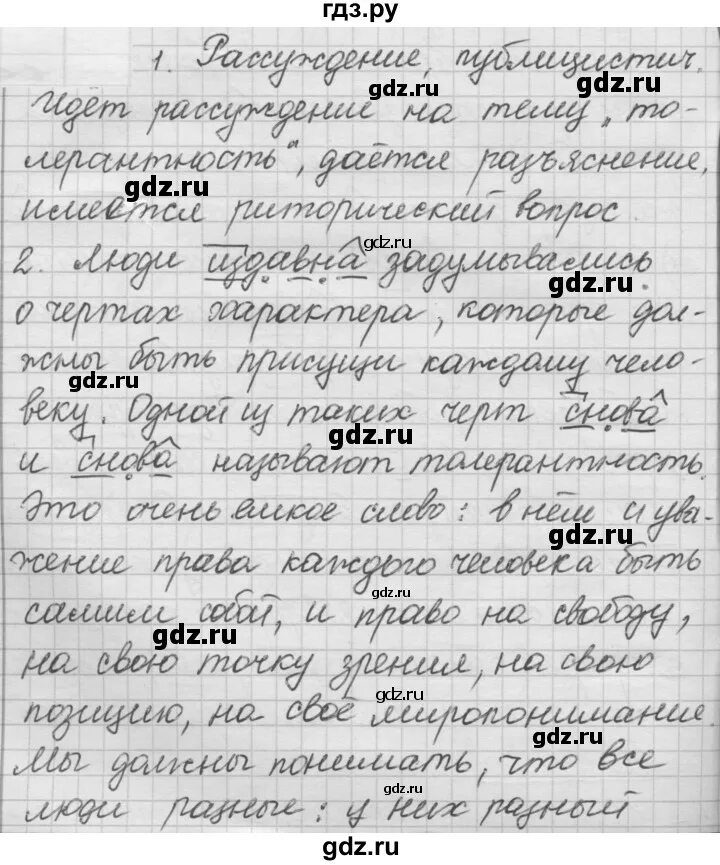 гдз.ру
1. Рассуждение, публицистич.
Идёт рассуждение на тему „то-
лерантность“, даётся разъяснение,
имеется риторический вопрос.
2. Люди издавна задумывались
о чертах характера, которые дол-
жны быть присущи каждому чело-
веку. Одной из таких черт снова
и снова называют толерантность.
Это очень емкое слово: в нём и ува-
жение права каждого человека быть
самим собой, и право на свободу,
на свою точку зрения, на свою
позицию, на своё миропонимание.
Мы должны понимать, что все
люди разные: у них разный
gdz.ru
gdz.ru
gdz.ru
gdz.ru
gdz.ru
gdz.ru
gdz.ru
gdz.ru
gdz.ru
gdz.ru
gdz.ru
gdz.ru
gdz.ru
gdz.ru